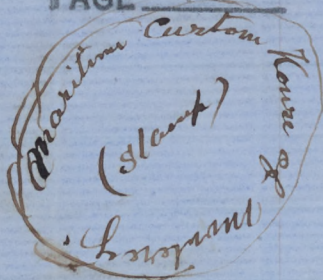 PAGE
Maritime Custom House of Monterey.
(Stamp)